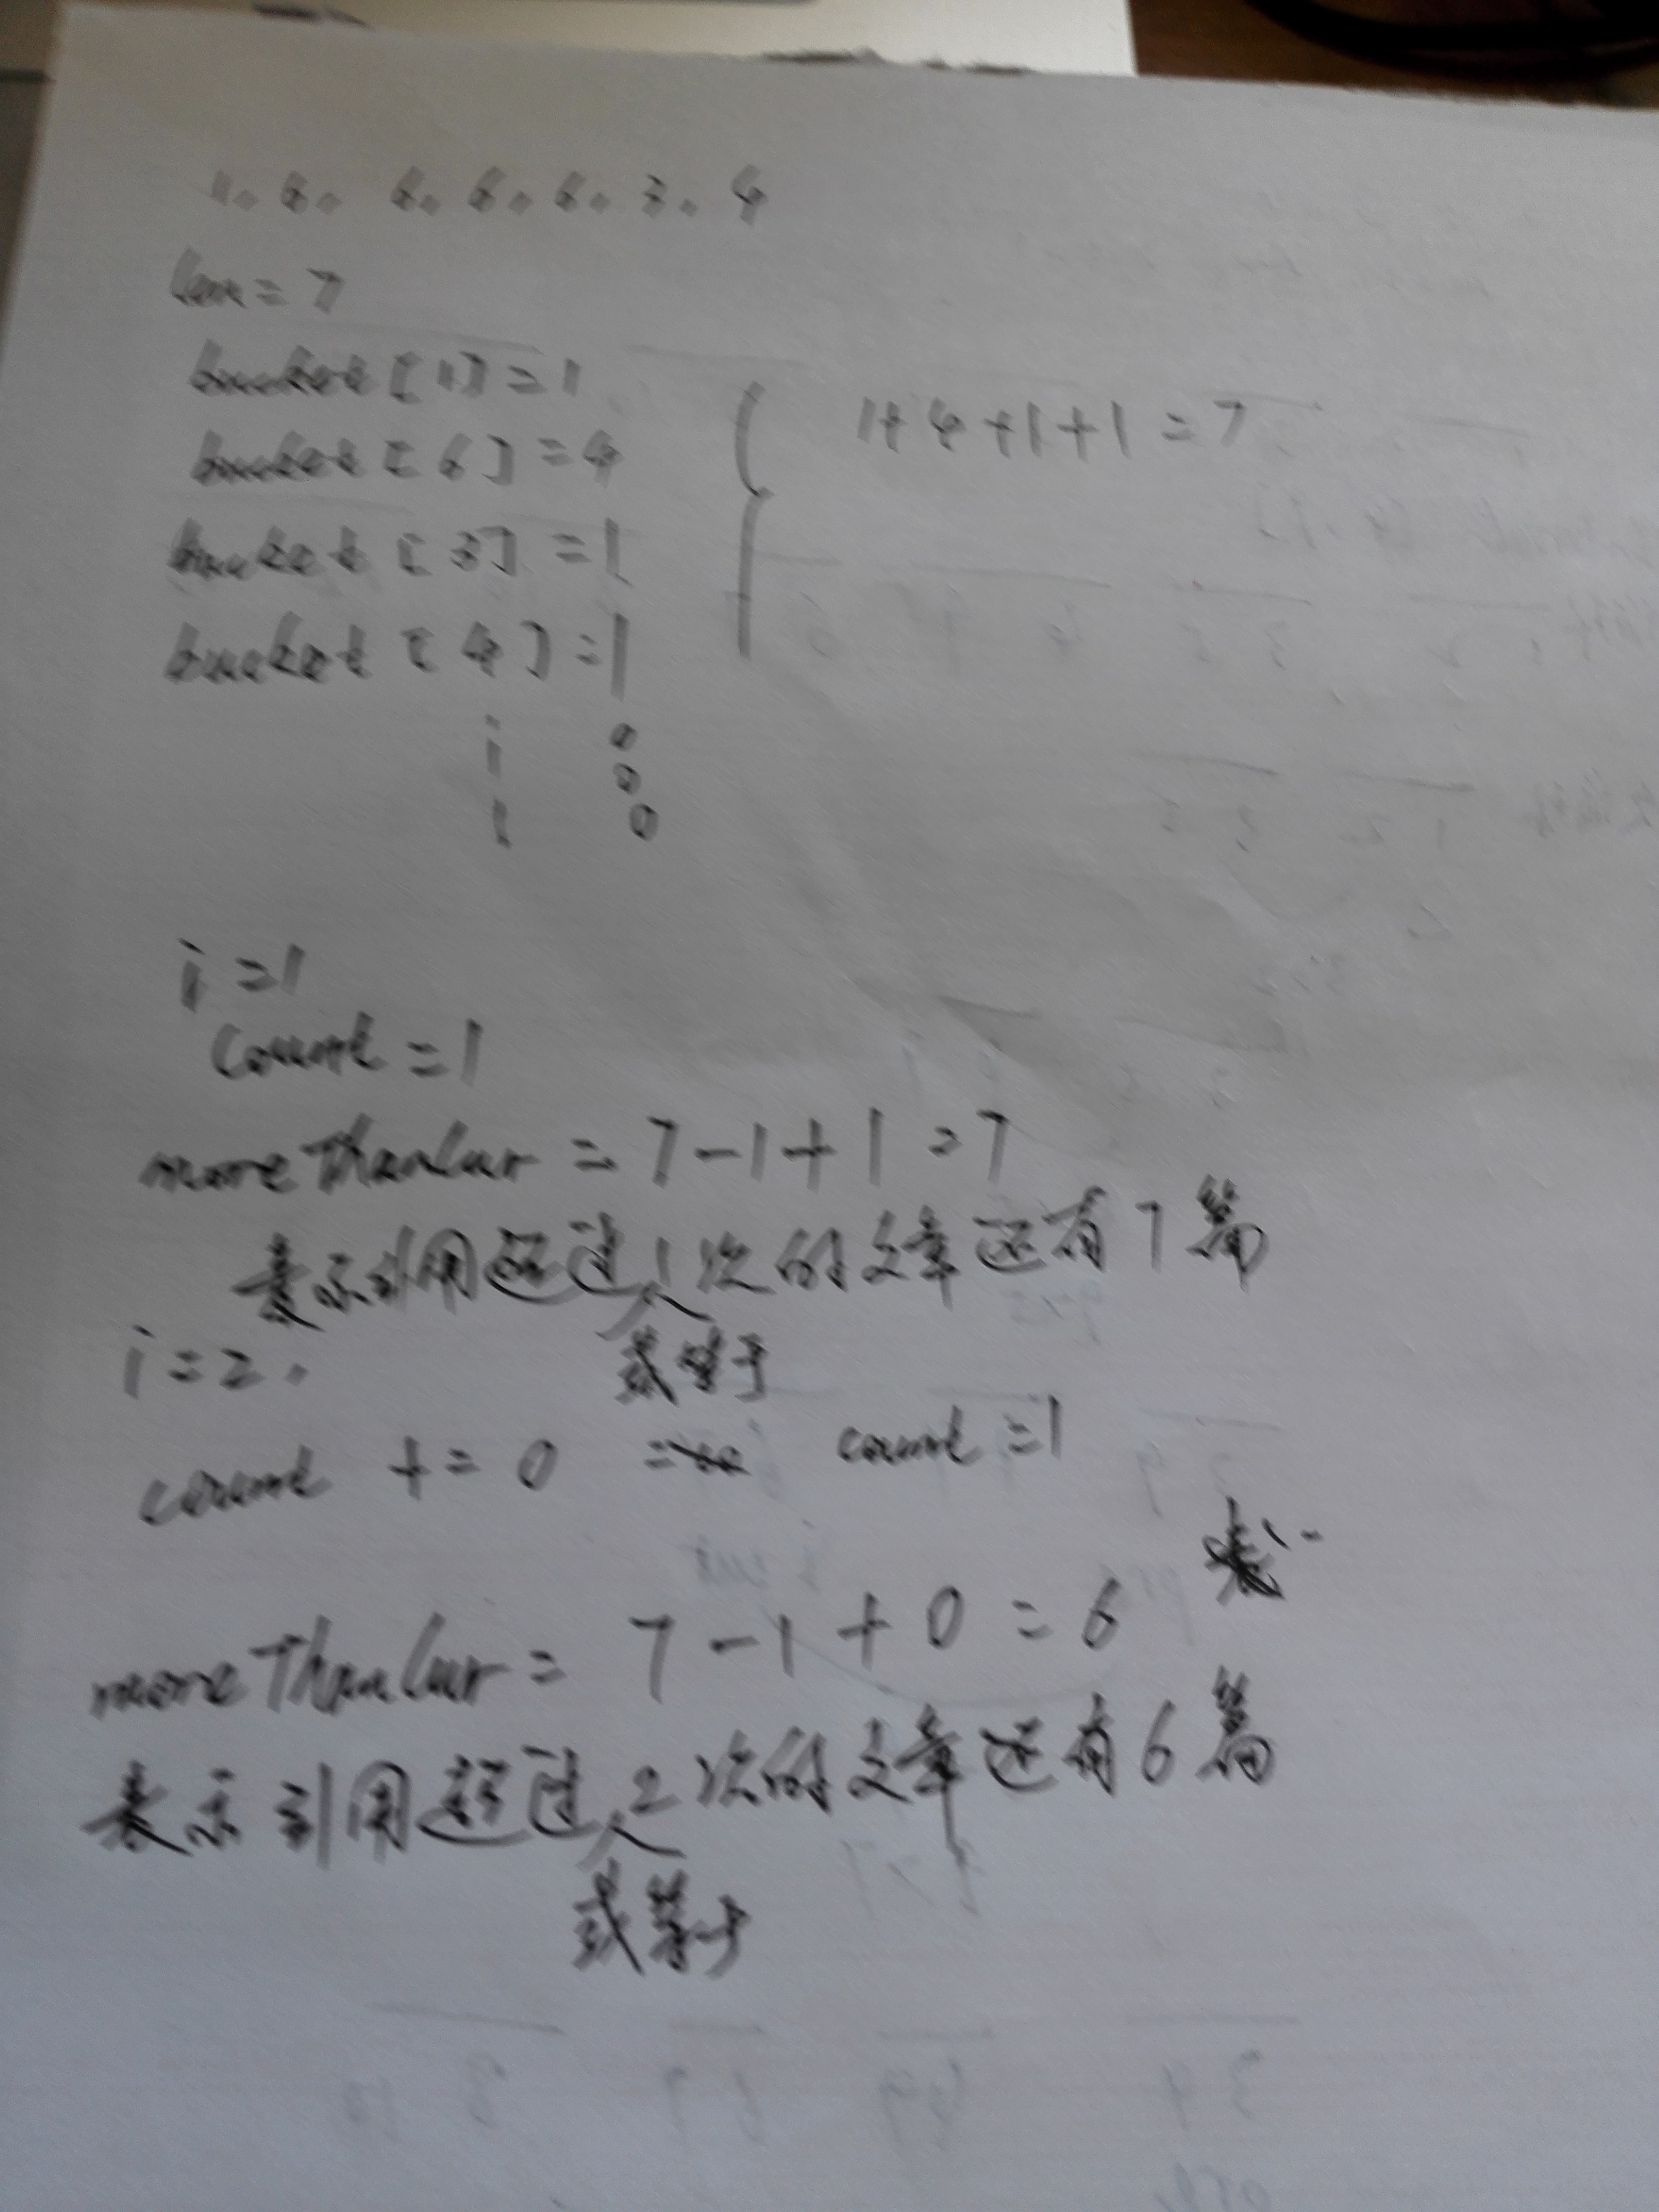 1. 6. 6. 6. 6. 3. 4
len = 7
bucket [1] = 1
bucket [6] = 4
1+4+1+1 = 7
bucket [3] = 1
bucket [4] = 1
i 0
0
1 0
i = 1
count = 1
moreThanCur = 7-1+1 = 7
表示引用超过1次的文章还有7篇
或等于
i = 2.
count += 0 count = 1
表
moreThanCur = 7-1+0 = 6
表示引用超过2次的文章还有6篇
或等于